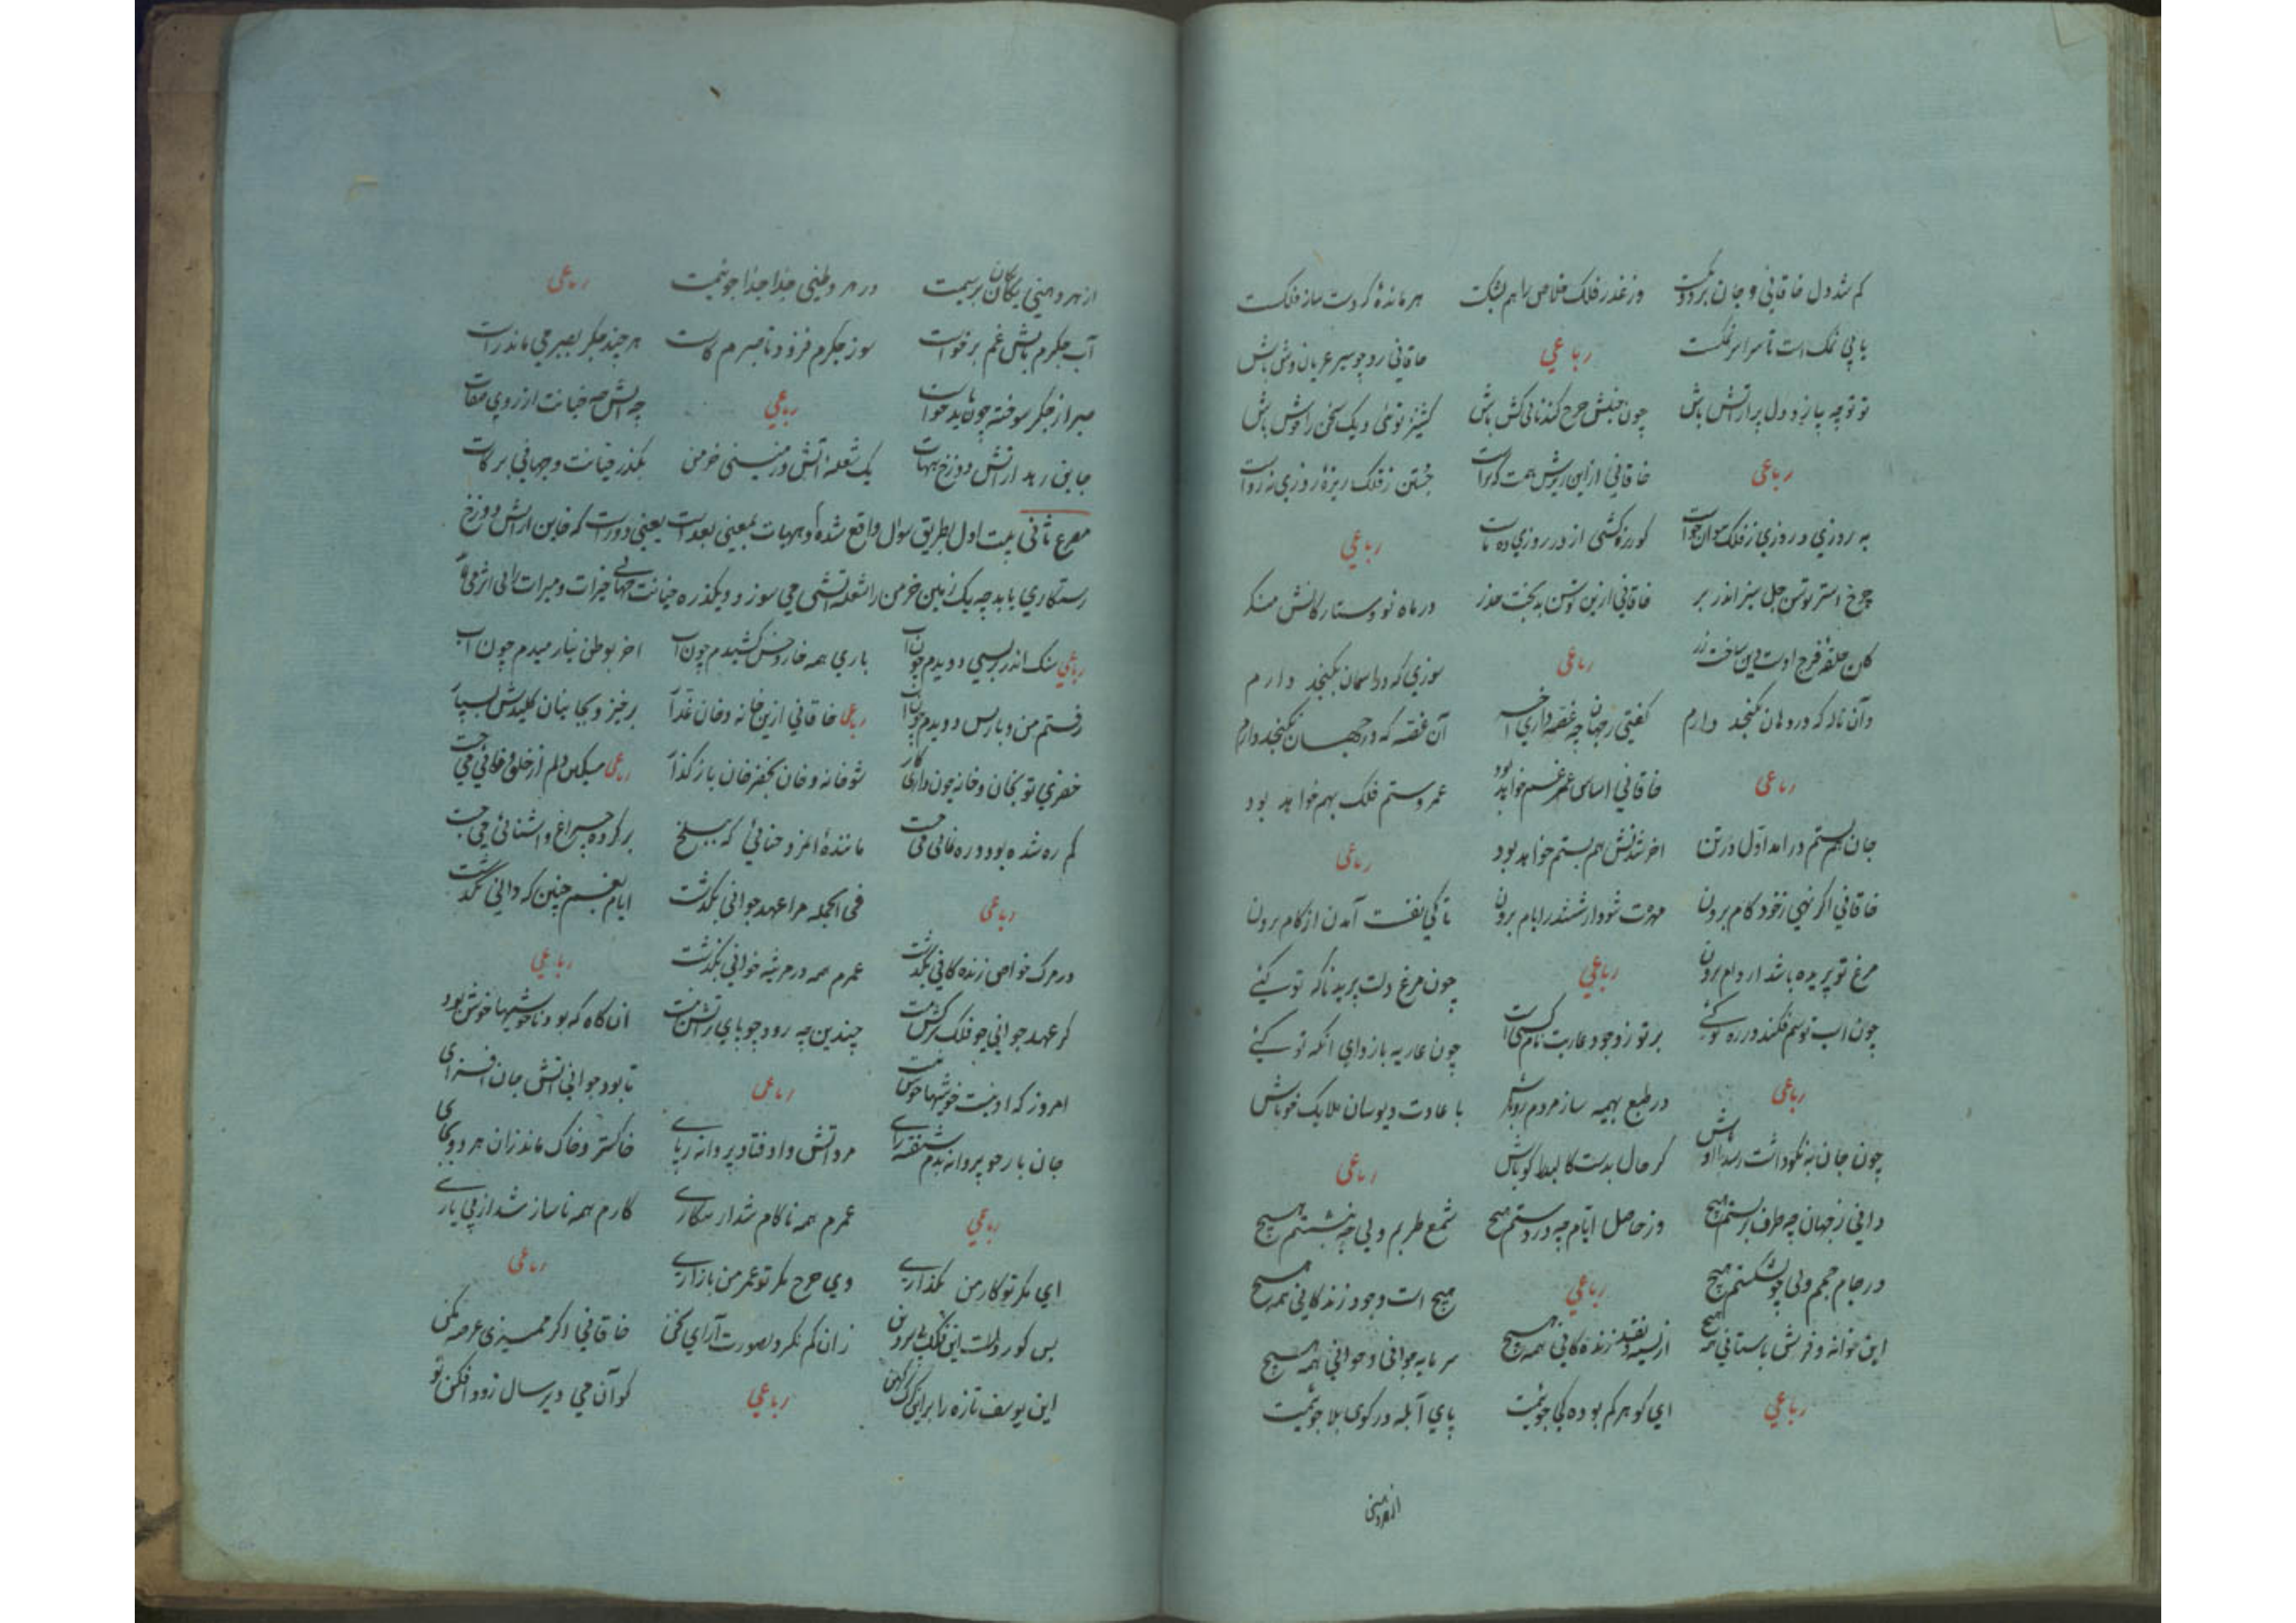 کم شد دل خاقانی و جان بر دو یکیست وز غدر فلک خلاص را هم بشکست هر مائده کز دست ساز فلکست
یا بی نمک است تا سراسر نمکست رباعی خاقانی رو چو سیر عریان وش باش
تو توچه پیاز و دل پر از آتش باش چون جنبش چرخ کندنائی کش باش کشنیز توئی دیک سخن را خوش باش
رباعی خاقانی از این ریزش همت که تراست جستن ز فلک ریزهٔ روزی نه رواست
به روزی و روزی ز فلک نتوان خواست کو ریزه کشی از در روزی ده ماست رباعی
چرخ استر توسن جل سبز اندر بر خاقانی ازین توسن بدبخت حذر در ماه نو و ستارگانش منگر
کان حلقهٔ فرج اوست وین ساخت زر رباعی سوزی که در آسمان نگنجد دارم
وآن ناله که در دهان نگنجد دارم گفتی ز جهان چه غصه داری آخر آن غصه که در جهان نگنجد دارم
رباعی خاقانی اساس عمر غم خواهد بود عمر و ستم فلک بهم خواهد بود
جان هم بستم در آمد اول در تن آخر شدنش هم بستم خواهد بود رباعی
خاقانی اگر نهی ز خود کام برون مهرت شود از ششدر ایام برون تا کی نفست آمدن از کام برون
مرغ تو پریده باشد از دام برون رباعی چون مرغ دلت پرید ناگه تو کئی
چون اسب تو سم فکند در ره تو کئی بر تو ز وجود عاریت نام کسی است چون عاریه باز دادی آنگه تو کئی
رباعی در طبع بهیمه سار مردم رو باش با عادت دیوسان ملایک خو باش
چون جان به نکوداشت رسد با او باش گر حال بدست کالبد گو باش رباعی
دانی ز جهان چه طرف بربستم هیچ وز حاصل ایام چه در دستم هیچ شمع طربم ولی چو بنشستم هیچ
در جام جمم ولی چو بشکستم هیچ رباعی هیچ است وجود زندگانی همه هیچ
این خوانه و فرش باستانی همه هیچ از نسیه و نقد زنده‌کانی همه هیچ سرمایه جوانی و جوانی همه هیچ
رباعی ای گوهر گم بوده کجا جوئیمت پای آبله در کوی بلا جوئیمت
از هر دهنی یکان یکان پرسیمت در هر وطنی جدا جدا جوئیمت رباعی
آب جگرم بآتش غم برخواست سوز جگرم فزود تا صبرم کاست هر چند جگر بصبر می ماند راست
صبر از جگر سوخته چون باید خواست رباعی
یک شعله آتش و زمینی خرمن بگذر خیانت و جهانی برکات
مصرع ثانی بیت اول بطریق سؤال واقع شده و هیهات بمعنی بعد است یعنی دور است که خاین از آتش دوزخ
رستگاری یابد چه یک زمین خرمن را شعله آتشی می سوزد و یکذره خیانت جهانی خیرات و مبرات را
رباعی سنگ اندر بر بسی دویدم چون آب باری همه خار و خس کشیدم چون آب آخر بوطن نیارمیدم چون آب
رفتم من و باز پس دویدم چون آب رباعی خاقانی ازین خانه و خان غدار برخیز و بخانیان کلیدش بسپار
خضری تو بخان و خانه چون داری کار شو خانه و خان بخضر خان باز گذار رباعی مسکین دلم از خلق وفائی می جست
گم ره شده بود و ره فانی می جست مانندهٔ برگرده چراغ و آشنائی می جست
رباعی فی الجمله مرا عهد جوانی بگذشت ایام بغم چنین که دانی بگذشت
در مرگ خواص زنده‌کانی بگذشت عمرم همه در مرثیه خوانی بگذشت رباعی
گر عهد جوانی چو فلک سرکش نیست چندین چه رود چو پای بر آتش نیست آن گاه که بود ناخوشیها خوش بود
امروز که او نیست خوشیها خوش نیست رباعی تا بود جوانی آتش جان افزای
جان باز چو پروانه بدم شیفته رای مرد آتش و اوفتاد پروانه ز پای خاکستر و خاک ماند زان هر دو بجای
رباعی عمرم همه ناکام شد از بیکاری کارم همه ناساز شد از بی یاری
ای یار مگر تو کار من بگذاری وی چرخ مگر تو عمر من باز آری رباعی
بس کور دلست این فلک بی سر و بن زان کم نگرد بصورت آرای سخن خاقانی اگر ممیزی عرضه مکن
این یوسف تازه را برین گرگ کهن رباعی کو آن می دیر سال زود افکن تو